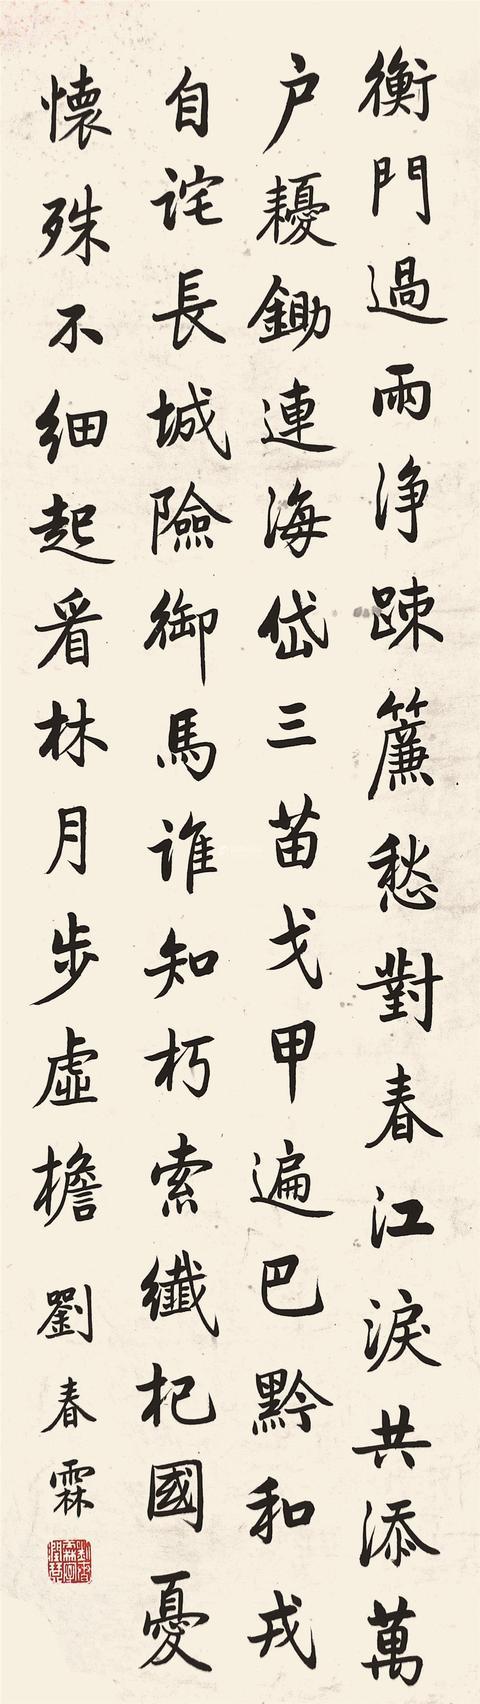 衡門過雨浄疎簾愁對春江淚共添萬
户耰鋤連海岱三苗戈甲遍巴黔和戎
自詫長城險御馬誰知朽索纖杞國憂
懷殊不細起看林月步虛檐
劉春霖